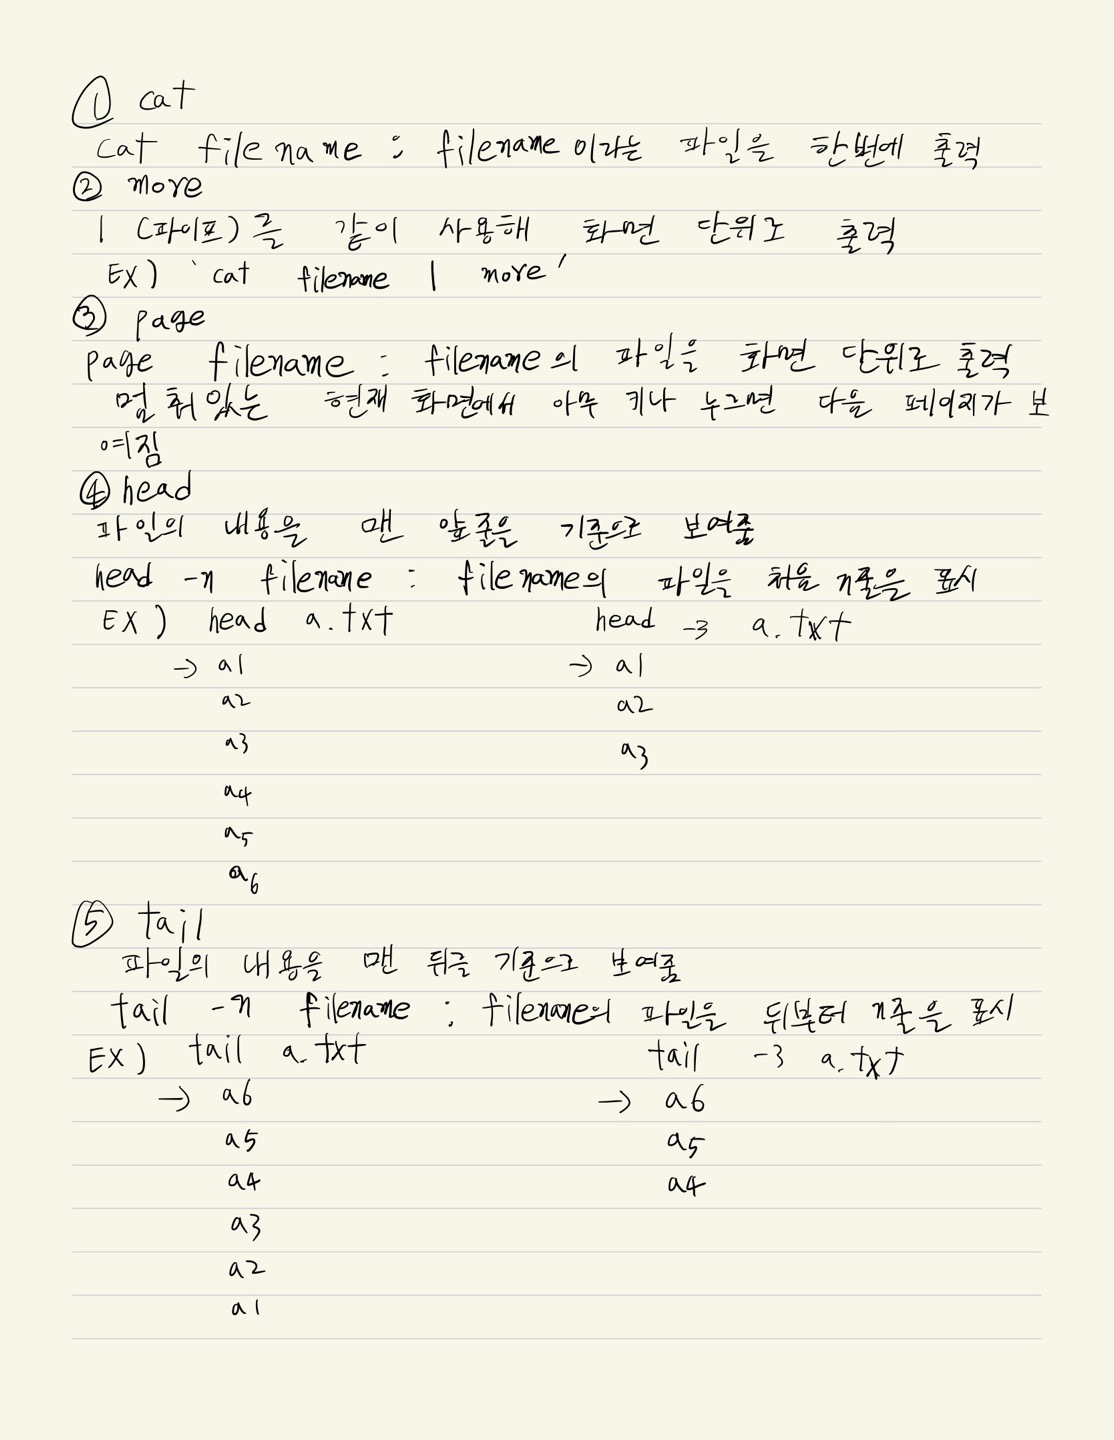 ① cat
cat filename : filename 이라는 파일을 한번에 출력
② more
| (파이프)를 같이 사용해 화면 단위로 출력
EX) 'cat filename | more'
③ page
page filename : filename의 파일을 화면 단위로 출력
멈춰있는 현재 화면에서 아무 키나 누르면 다음 페이지가 보
여짐
④ head
파일의 내용을 맨 앞줄을 기준으로 보여줌
head -n filename : filename의 파일을 처음 n줄을 표시
EX) head a.txt head -3 a.txt
→ a1 → a1
a2 a2
a3 a3
a4
a5
a6
⑤ tail
파일의 내용을 맨 뒤를 기준으로 보여줌
tail -n filename : filename의 파일을 뒤부터 n줄을 표시
EX) tail a.txt tail -3 a.txt
→ a6 → a6
a5 a5
a4 a4
a3
a2
a1